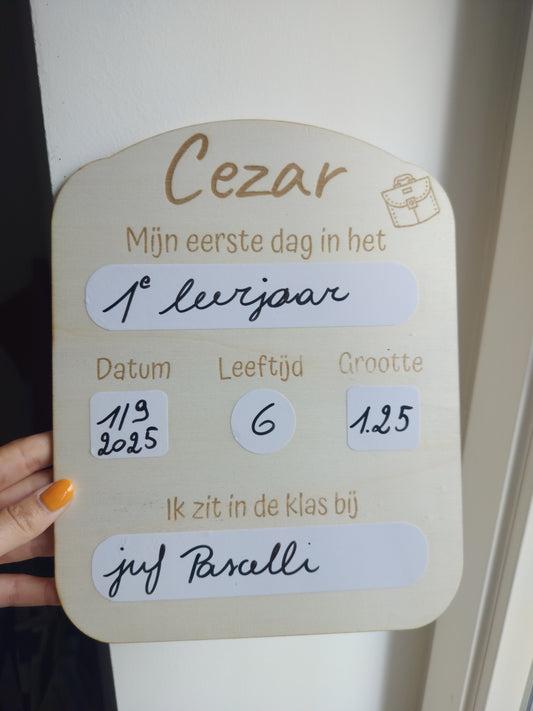 Cezar
Mijn eerste dag in het
1e leerjaar
Datum Leeftijd Grootte
1/9 6 1.25
2025
Ik zit in de klas bij
juf Pascalli